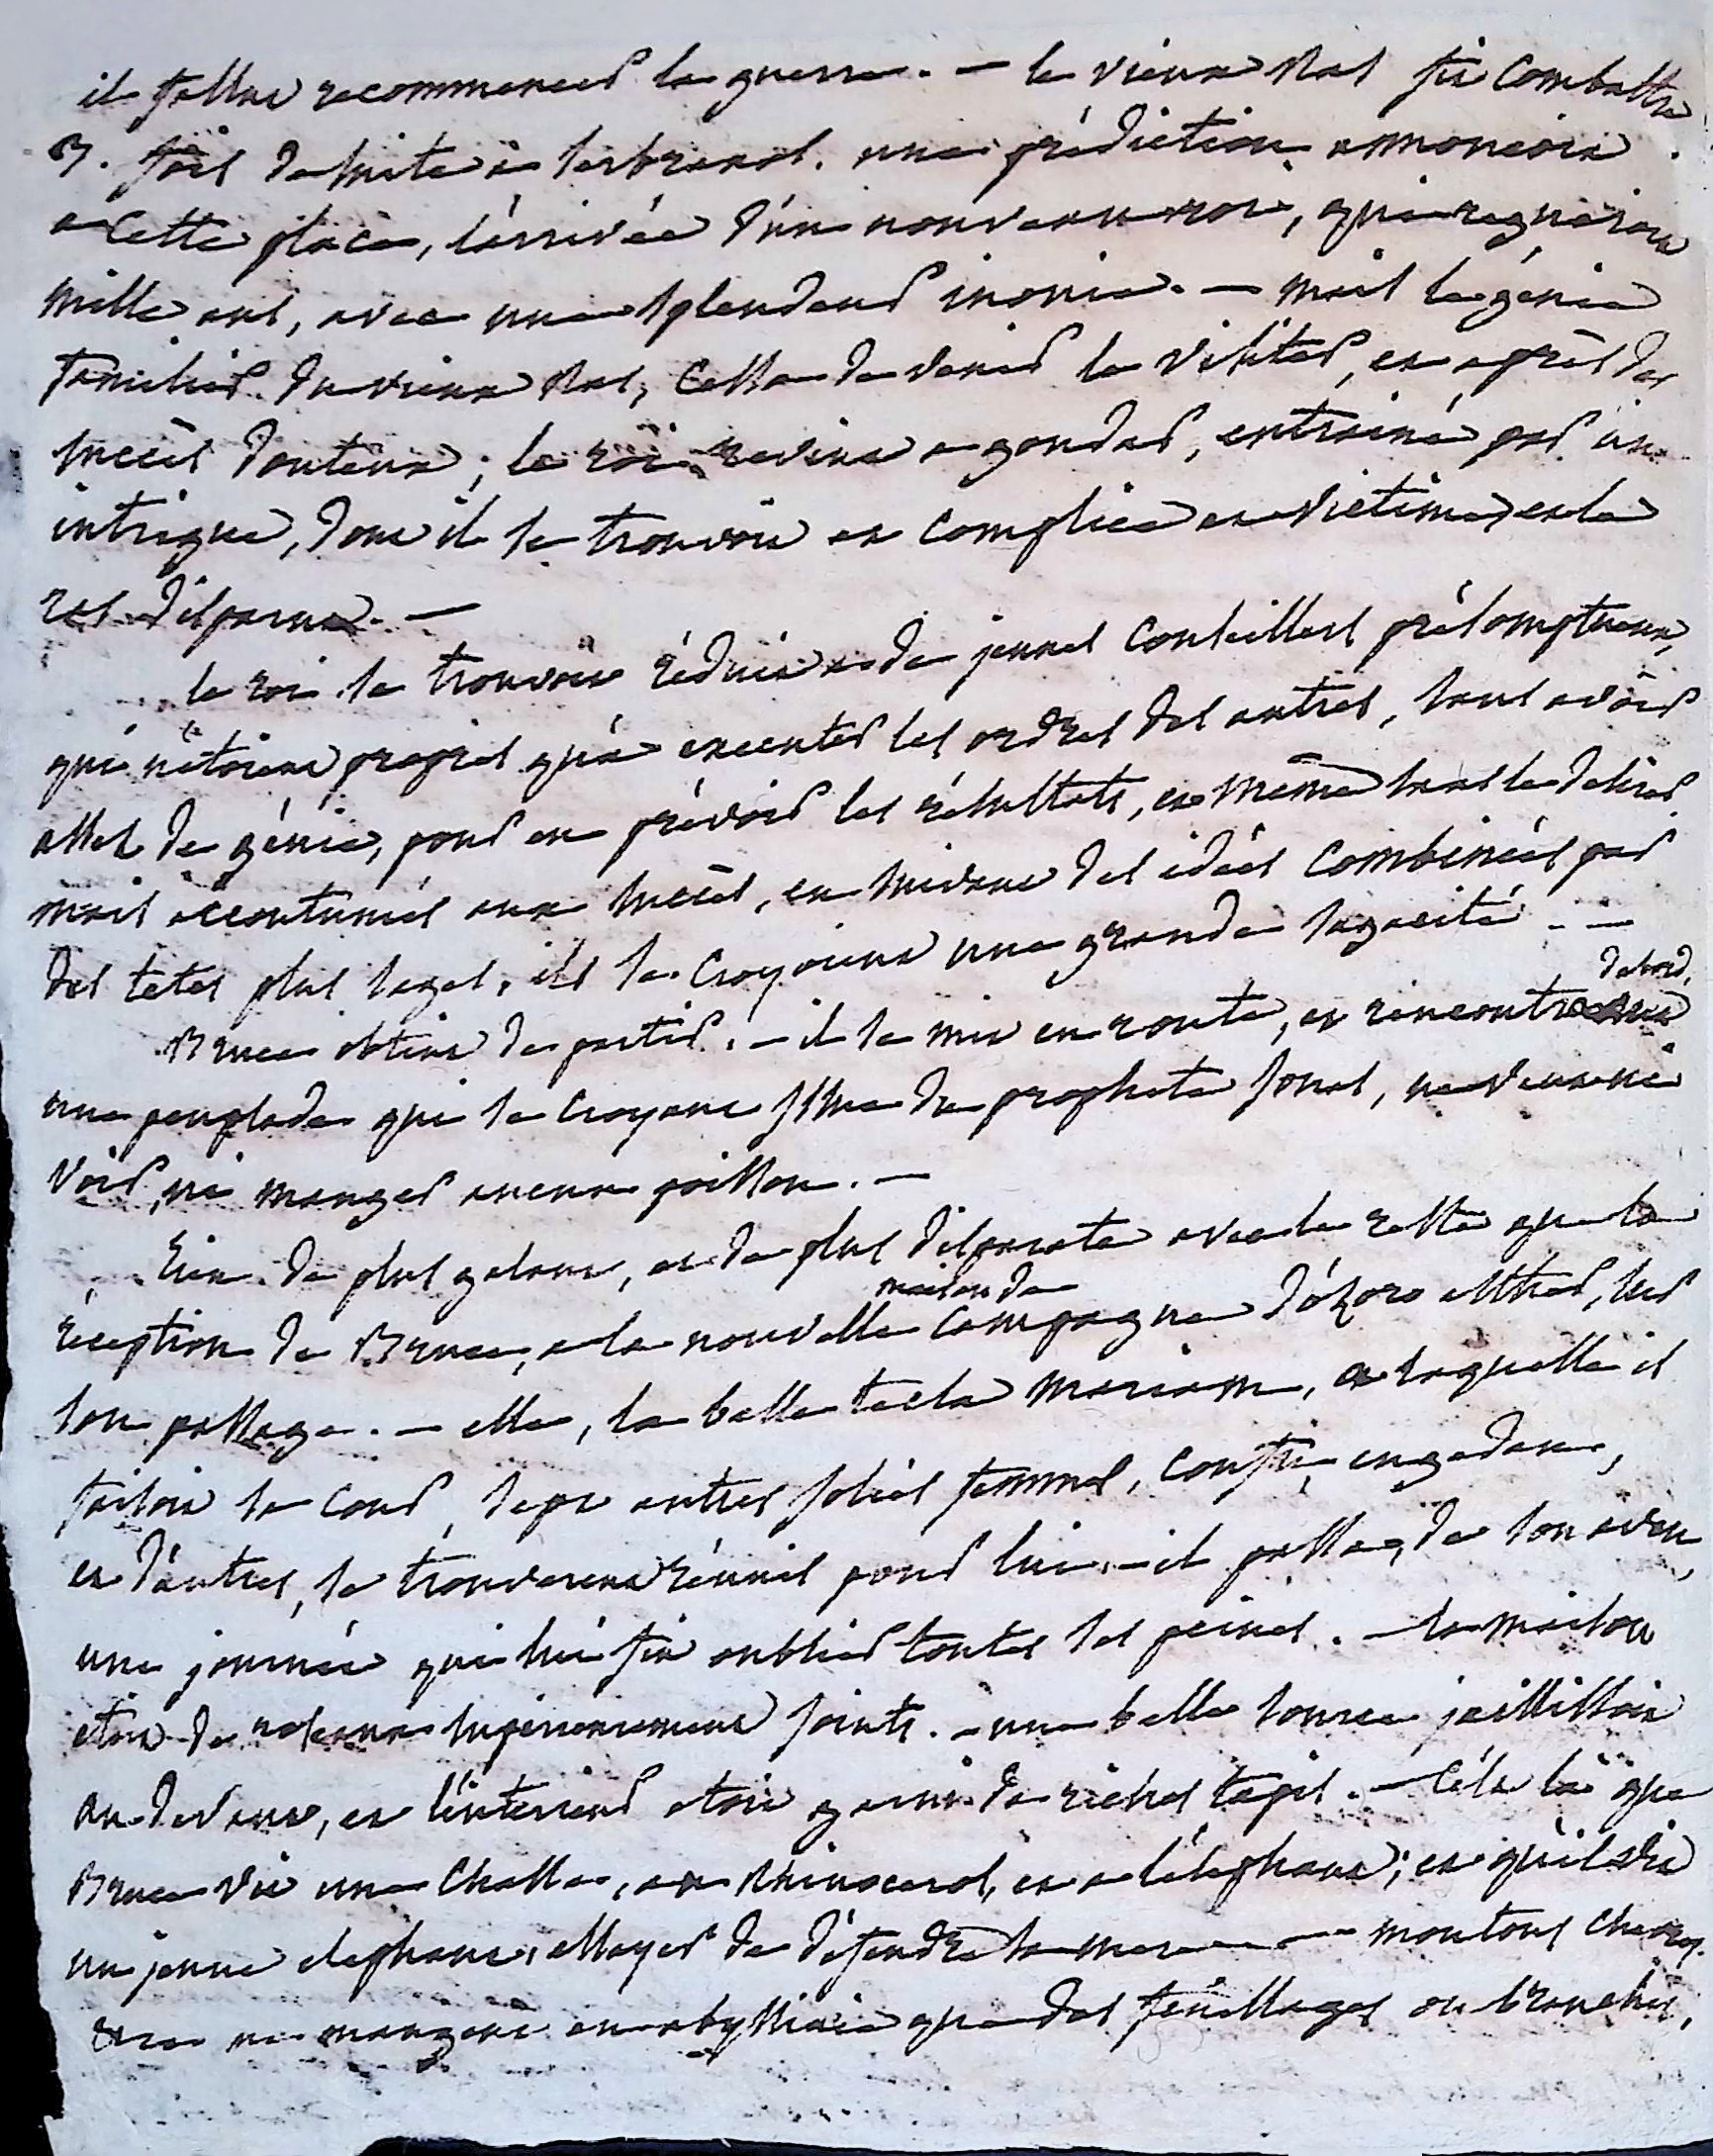 il fallut recommencer la guerre. — le vieux Ras fit combattre
3. fois de suite à serbraxos. une prédiction annoncoit
a cette place, l'arrivée d'un nouveau roi, qui regneroit
mille ans, avec une splendeur inouie. — mais le génie
familier du vieux Ras, cessa de venir le visiter, et après des
succès douteux, le roi revint a gondar, entrainé par une
intrigue, dont il se trouvoit et complice et victime, et le
ras disparut. —
le roi se trouvoit réduit a de jeunes conseillers présomptueux,
qui n'etoient propres qu'a executer les ordres des autres, sans avoir
assez de génie, pour en prévoir les résultats, et même sans le desirer
mais accoutumés aux succès, en suivant des idées combinées par
des tetes plus sages, ils se croyoient une grande sagacité. —
Bruce obtint de partir. — il se mit en route, et rencontra d'abord,
une peuplade qui se croyant issue du prophete jonas, ne veut ni
voir, ni manger aucun poisson. —
Rien de plus galant, et de plus disparate avec le reste que la
réception de Bruce, a la nouvelle maison de campagne d'ozoro esther, sur
son passage. — elle, la belle tecla mariam, a laquelle il
faisoit sa cour, sept autres jolies femmes, confu, engedan,
et d'autres, se trouverent réunis pour lui. — il passa, de son aveu,
une journée qui lui fit oublier toutes ses peines. — la maison
etoit de roseaux superieurement joints. — une belle source jaillissoit
au devant, et l'interieur etoit garni de riches tapis. — C'est là que
Bruce vit une chasse, au Rhinoceros, et a l'éléphant; et qu'il vit
un jeune elephant, essayer de défendre sa mere — moutons
ne mangent en abyssinie que des feuillages ou branches,